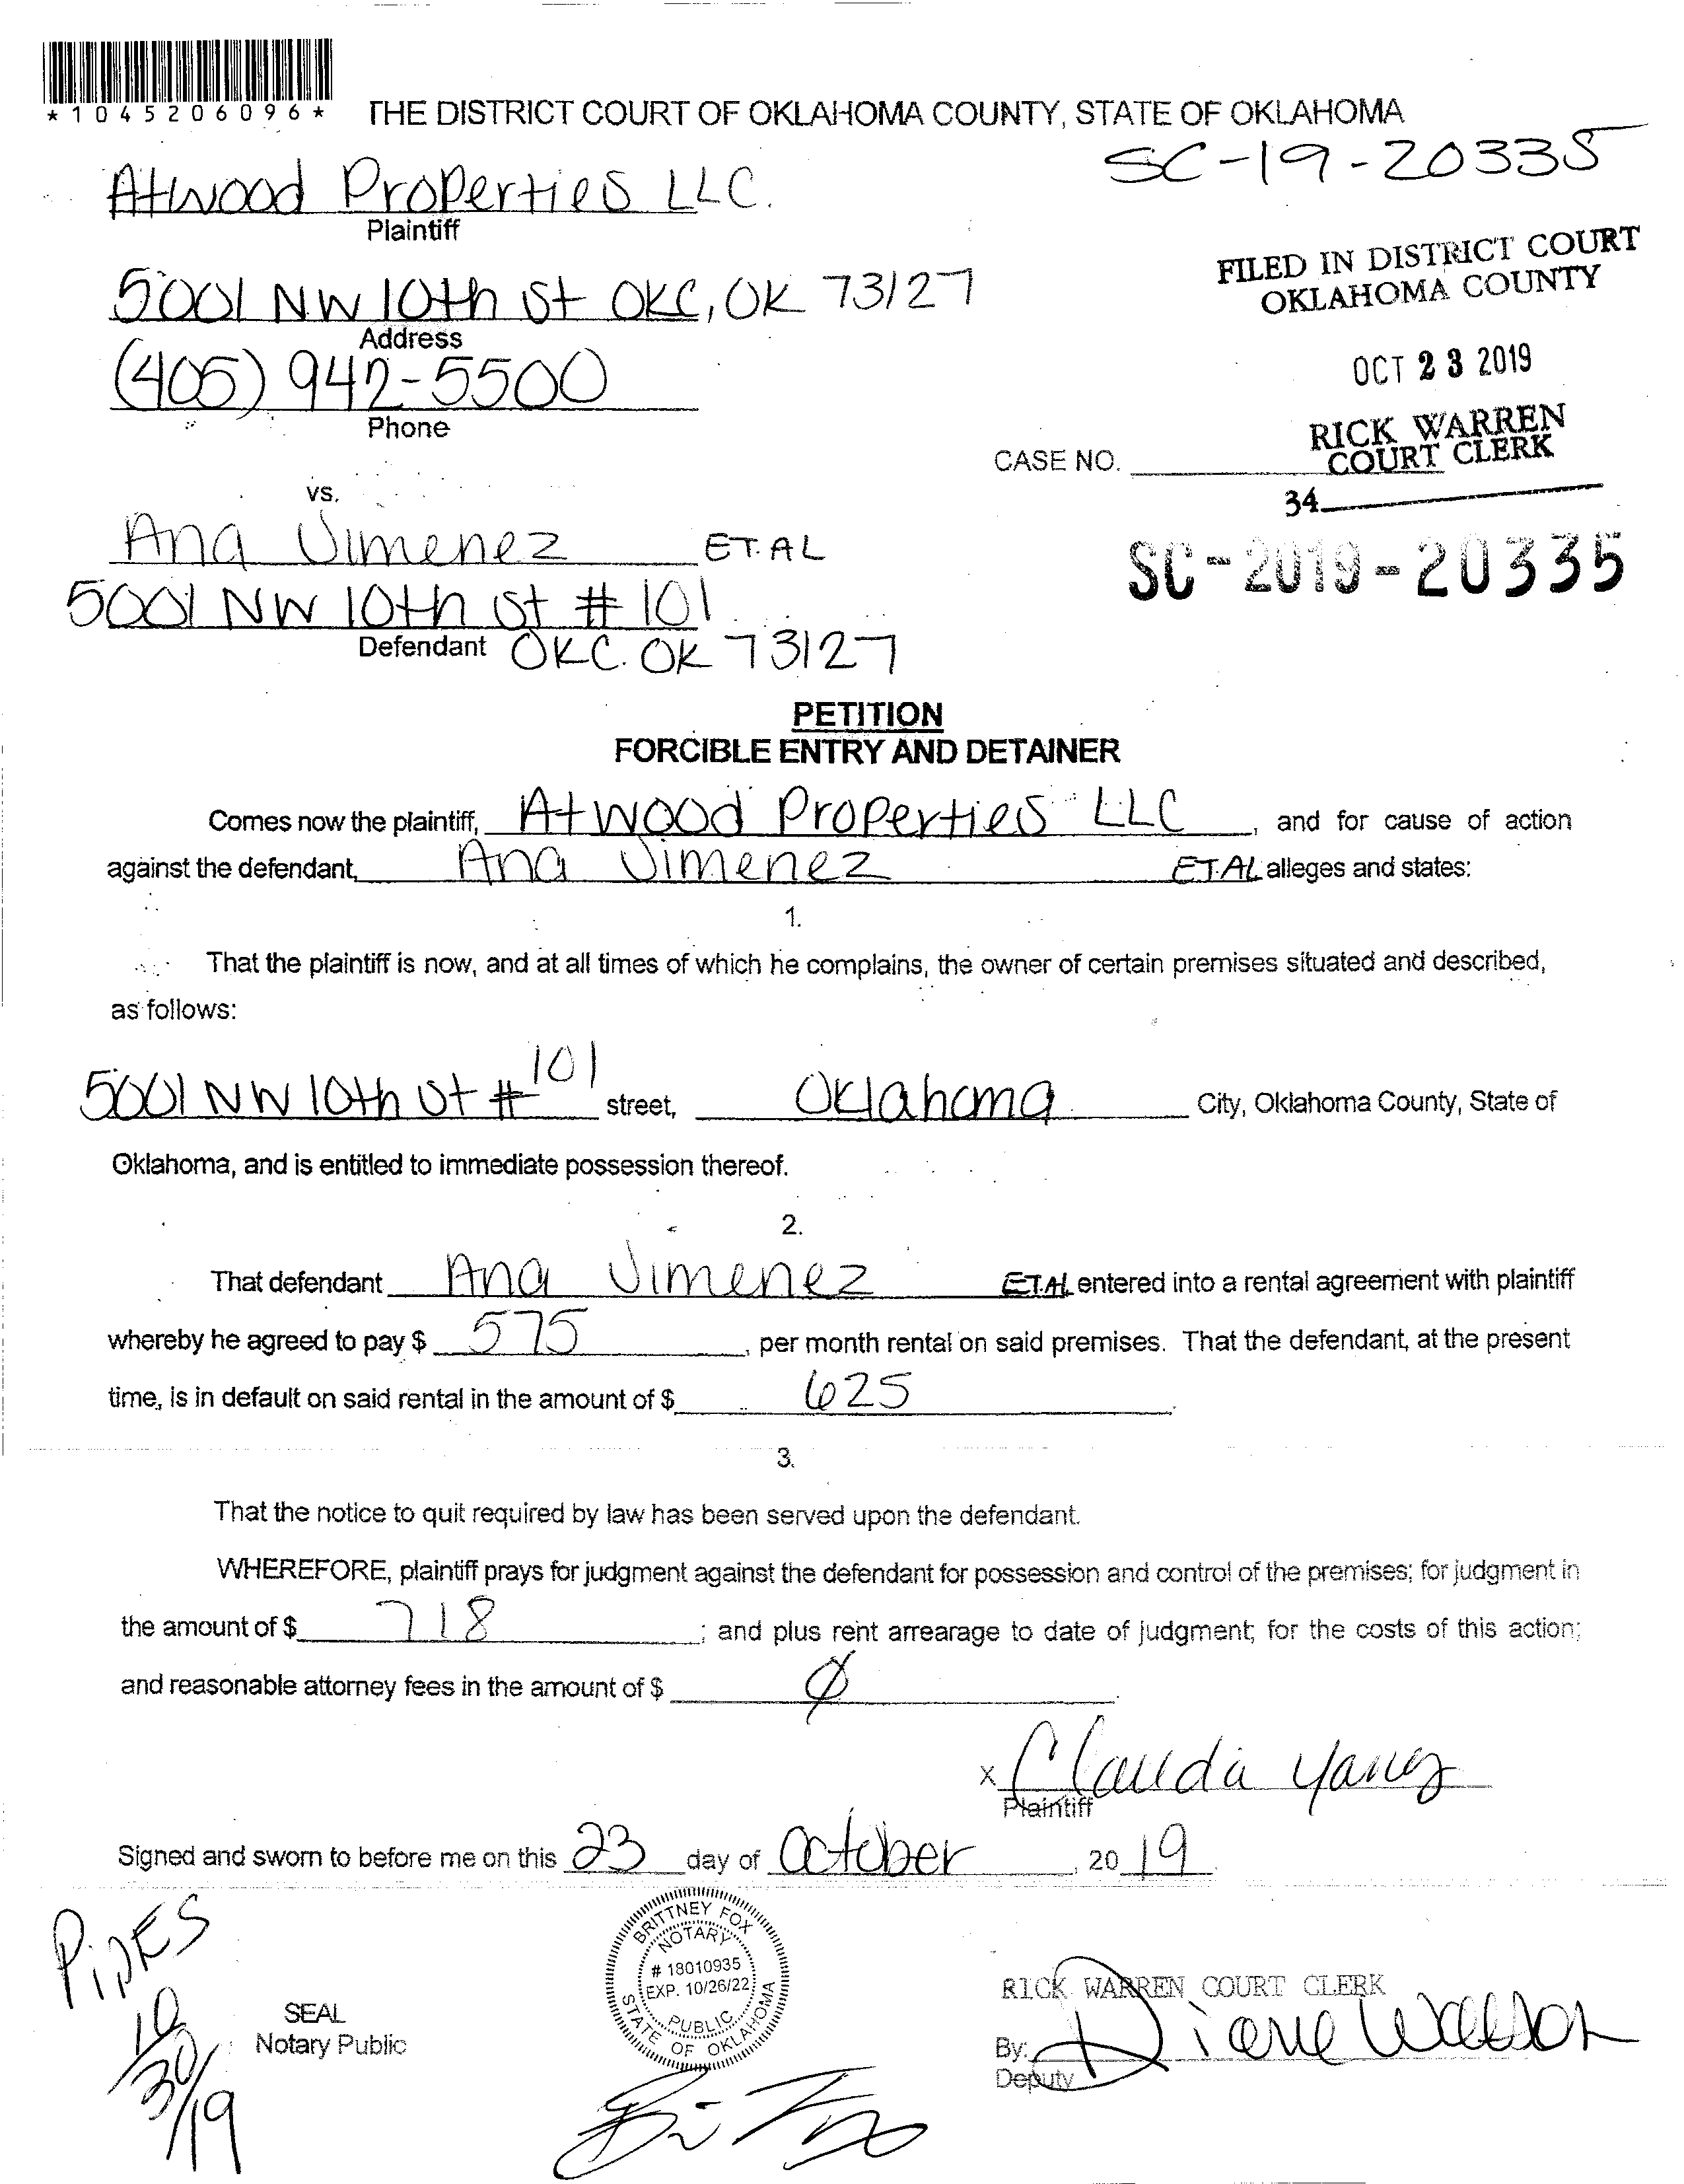 *1045206096*
THE DISTRICT COURT OF OKLAHOMA COUNTY, STATE OF OKLAHOMA
SC-19-20335
Atwood Properties LLC.
Plaintiff
FILED IN DISTRICT COURT
OKLAHOMA COUNTY
5001 NW 10th St OKC, OK 73127
Address
OCT 23 2019
(405) 942-5500
Phone
RICK WARREN
COURT CLERK
CASE NO.
34
vs.
Ana Jimenez ET. AL
SC-2019-20335
5001 NW 10th St # 101
Defendant OKC. OK 73127
PETITION
FORCIBLE ENTRY AND DETAINER
Comes now the plaintiff, Atwood Properties LLC, and for cause of action
against the defendant, Ana Jimenez ET.AL alleges and states:
1.
That the plaintiff is now, and at all times of which he complains, the owner of certain premises situated and described,
as follows:
5001 NW 10th St # 101 street, Oklahoma City, Oklahoma County, State of
Oklahoma, and is entitled to immediate possession thereof.
2.
That defendant Ana Jimenez ET.AL entered into a rental agreement with plaintiff
whereby he agreed to pay $ 575, per month rental on said premises. That the defendant, at the present
time, is in default on said rental in the amount of $ 625.
3.
That the notice to quit required by law has been served upon the defendant.
WHEREFORE, plaintiff prays for judgment against the defendant for possession and control of the premises; for judgment in
the amount of $ 718; and plus rent arrearage to date of judgment; for the costs of this action;
and reasonable attorney fees in the amount of $ Ø.
x Claudia Yanez
Plaintiff
Signed and sworn to before me on this 23 day of October, 2019.
PIPES
10/30/19
SEAL
Notary Public
BRITTNEY FOX
NOTARY
# 18010935
EXP. 10/26/22
PUBLIC
STATE OF OKLAHOMA
RICK WARREN COURT CLERK
By: Diane Watson
Deputy